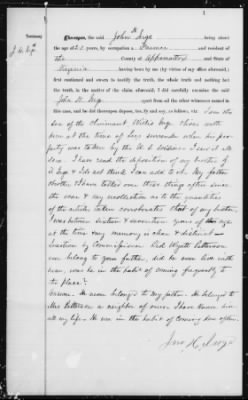 Testimony
Thereupon, the said John H. Inge being about
the age of years, by occupation a Farmer and resident of
the County of Appomattox and State of
Virginia having been by me (by virtue of my office aforesaid,)
first cautioned and sworn to testify the whole truth, and nothing but
the truth, in the matter of the claim aforesaid, I did carefully examine the said
John H. Inge apart from all the other witnesses named in
this case, and he did thereupon depose, testify, and say, as follows, viz: I am the
son of the claimant I lived with
at the time of Lee's surrender when his pro-
perty was taken by the U.S. soldiers I saw it all
I have read the deposition of my brother
Inge & I do not think I can add to it. My father
brother & I have talked over these things often since
the war & my recollection as to the quantities
of the articles taken corroborates that of my brother,
I was between sixteen & seventeen years of age
at the time & my memory is clear & distinct
Question by Commissioner. Did Wyatt Patterson
ever belong to your father, did he ever live with
him, was he in the habit of coming frequently to
the place?
Answer. He never belonged to my father. He belonged to
Mrs Patterson a neighbor of ours. I have known him
all my life. He was in the habit of coming here often.
Jno H. Inge